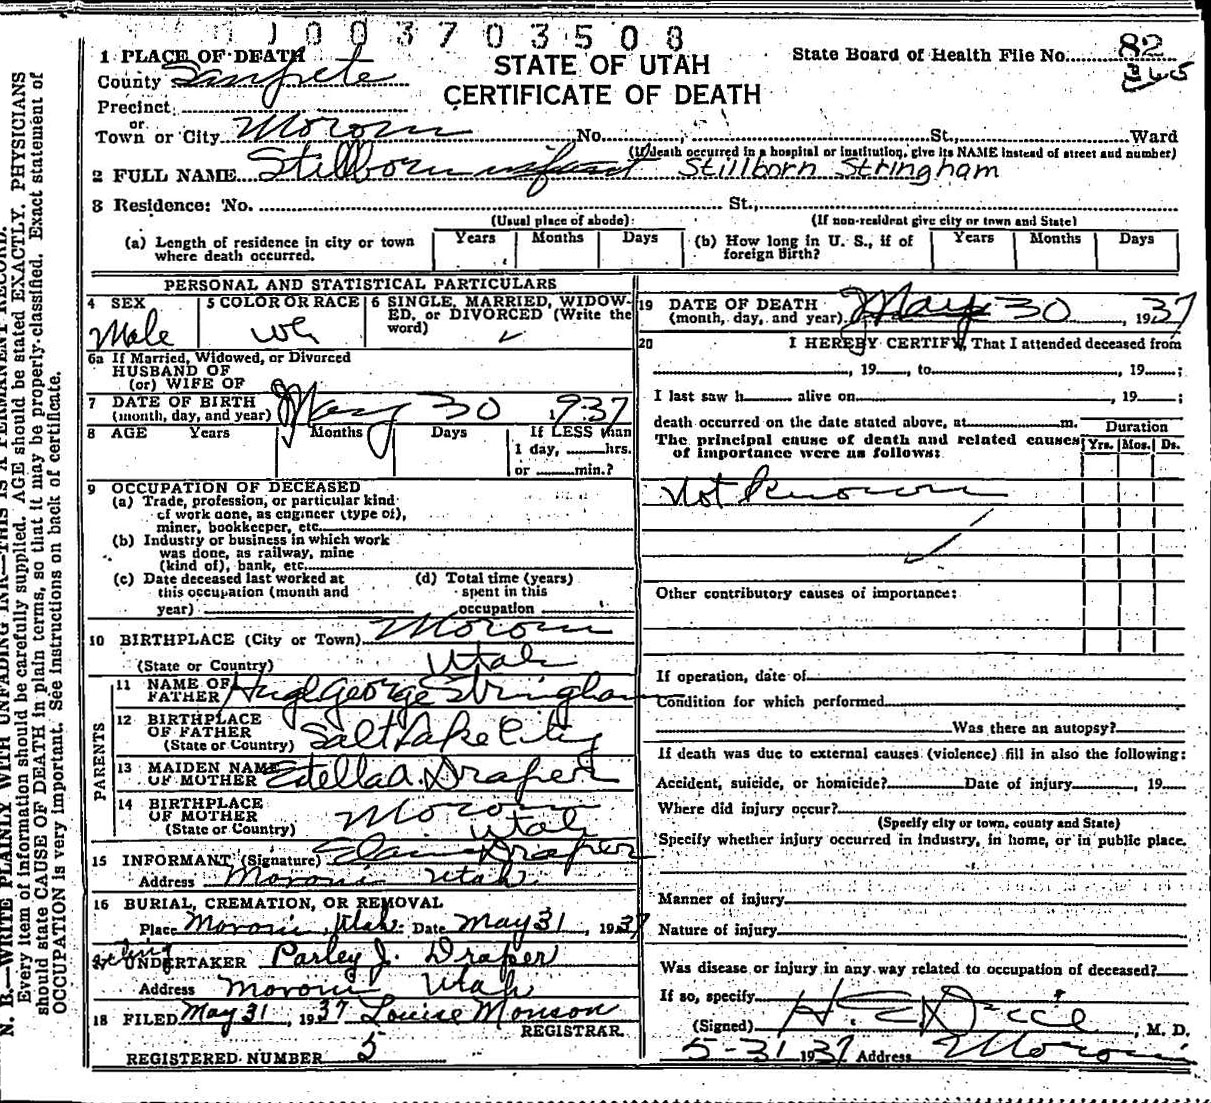 1003703508
1 PLACE OF DEATH
STATE OF UTAH
CERTIFICATE OF DEATH
State Board of Health File No. 82
365
County Sanpete
Precinct
or
Town or City Moroni No. St., Ward
(If death occurred in a hospital or institution, give its NAME instead of street and number)
2 FULL NAME Stillborn infant Stillborn Stringham
3 Residence: No. St.,
(Usual place of abode) (If non-resident give city or town and State)
(a) Length of residence in city or town where death occurred. Years Months Days (b) How long in U. S., if of foreign Birth? Years Months Days
PERSONAL AND STATISTICAL PARTICULARS
4 SEX Male
5 COLOR OR RACE wh
6 SINGLE, MARRIED, WIDOWED, or DIVORCED (Write the word)
6a If Married, Widowed, or Divorced
HUSBAND OF
(or) WIFE OF
7 DATE OF BIRTH
(month, day, and year) May 30 1937
8 AGE Years Months Days If LESS than
1 day, hrs.
or min.?
9 OCCUPATION OF DECEASED
(a) Trade, profession, or particular kind
of work done, as engineer (type of),
miner, bookkeeper, etc.
(b) Industry or business in which work
was done, as railway, mine
(kind of), bank, etc.
(c) Date deceased last worked at
this occupation (month and
year)
(d) Total time (years)
spent in this
occupation
10 BIRTHPLACE (City or Town) Moroni
(State or Country) Utah
PARENTS
11 NAME OF
FATHER Hugh George Stringham
12 BIRTHPLACE
OF FATHER
(State or Country) Salt Lake City
13 MAIDEN NAME
OF MOTHER Estella A. Draper
14 BIRTHPLACE
OF MOTHER
(State or Country) Moroni
Utah
15 INFORMANT (Signature) Draper
Address Moroni Utah
16 BURIAL, CREMATION, OR REMOVAL
Place Moroni, Utah. Date May 31, 1937
acting
17 UNDERTAKER Parley J. Draper
Address Moroni Utah
18 FILED May 31, 1937 Louise Monson
REGISTRAR.
REGISTERED NUMBER 5
19 DATE OF DEATH
(month, day, and year) May 30, 1937
20 I HEREBY CERTIFY, That I attended deceased from
, 19 , to , 19 ;
I last saw h alive on , 19 ;
death occurred on the date stated above, at m.
The principal cause of death and related causes
of importance were as follows:
Duration
Yrs. Mos. Ds.
Not Known
Other contributory causes of importance:
If operation, date of
Condition for which performed
Was there an autopsy?
If death was due to external causes (violence) fill in also the following:
Accident, suicide, or homicide? Date of injury , 19
Where did injury occur?
(Specify city or town, county and State)
Specify whether injury occurred in industry, in home, or in public place.
Manner of injury
Nature of injury
Was disease or injury in any way related to occupation of deceased?
If so, specify
(Signed) , M. D.
5-31 1937 Address Moroni
N. B.—WRITE PLAINLY WITH UNFADING INK—THIS IS A PERMANENT RECORD.
Every item of information should be carefully supplied. AGE should be stated EXACTLY. PHYSICIANS
should state CAUSE OF DEATH in plain terms, so that it may be properly classified. Exact statement of
OCCUPATION is very important. See instructions on back of certificate.